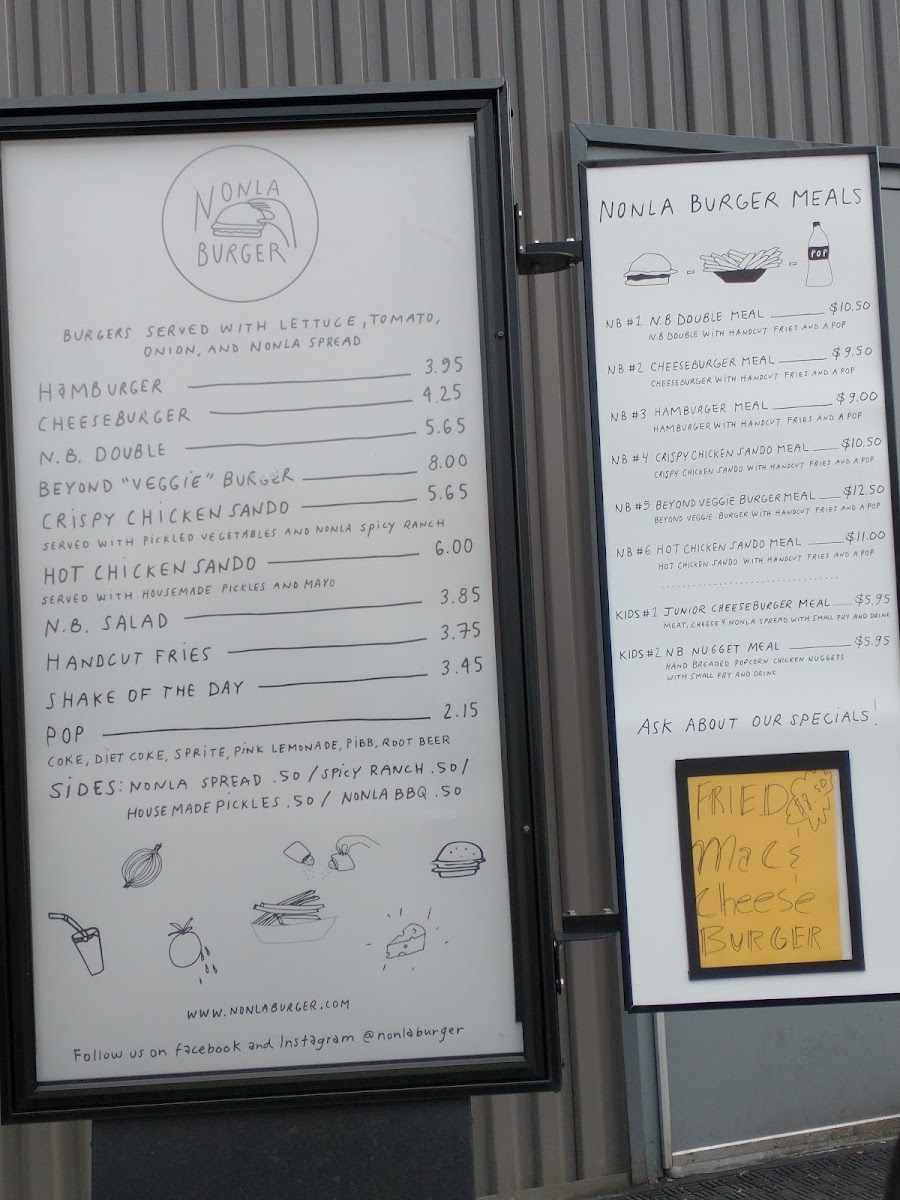 NONLA
BURGER
BURGERS SERVED WITH LETTUCE, TOMATO,
ONION, AND NONLA SPREAD
HAMBURGER 3.95
CHEESEBURGER 4.25
N.B. DOUBLE 5.65
BEYOND "VEGGIE" BURGER 8.00
CRISPY CHICKEN SANDO 5.65
SERVED WITH PICKLED VEGETABLES AND NONLA SPICY RANCH
HOT CHICKEN SANDO 6.00
SERVED WITH HOUSEMADE PICKLES AND MAYO
N.B. SALAD 3.85
HANDCUT FRIES 3.75
SHAKE OF THE DAY 3.45
POP 2.15
COKE, DIET COKE, SPRITE, PINK LEMONADE, PIBB, ROOT BEER
SIDES: NONLA SPREAD .50 / SPICY RANCH .50 /
HOUSEMADE PICKLES .50 / NONLA BBQ .50
WWW.NONLABURGER.COM
Follow us on facebook and Instagram @nonlaburger
NONLA BURGER MEALS
POP
NB #1 N.B DOUBLE MEAL $10.50
N.B DOUBLE WITH HANDCUT FRIES AND A POP
NB #2 CHEESEBURGER MEAL $9.50
CHEESEBURGER WITH HANDCUT FRIES AND A POP
NB #3 HAMBURGER MEAL $9.00
HAMBURGER WITH HANDCUT FRIES AND A POP
NB #4 CRISPY CHICKEN SANDO MEAL $10.50
CRISPY CHICKEN SANDO WITH HANDCUT FRIES AND A POP
NB #5 BEYOND VEGGIE BURGER MEAL $12.50
BEYOND VEGGIE BURGER WITH HANDCUT FRIES AND A POP
NB #6 HOT CHICKEN SANDO MEAL $11.00
HOT CHICKEN SANDO WITH HANDCUT FRIES AND A POP
KIDS #1 JUNIOR CHEESEBURGER MEAL $5.95
MEAT, CHEESE & NONLA SPREAD WITH SMALL FRY AND DRINK
KIDS #2 NB NUGGET MEAL $5.95
HAND BREADED POPCORN CHICKEN NUGGETS
WITH SMALL FRY AND DRINK
ASK ABOUT OUR SPECIALS!
FRIED
Mac &
Cheese
BURGER